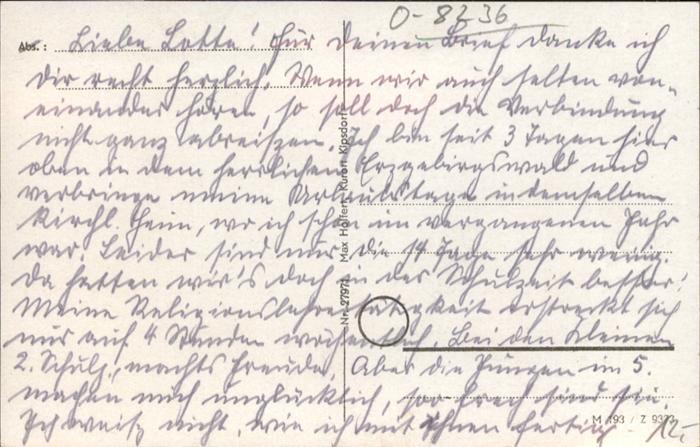 O-8236
Abs.:
Liebe Lotte! Für Deinen Brief danke ich
Dir recht herzlich. Wenn wir auch selten von-
einander hören, so soll doch die Verbindung
nicht ganz abreißen. Ich bin seit 3 Tagen hier
oben in dem herrlichen Erzgebirgswald und
verbringe meine Urlaubstage in demselben
kirchl. Heim, wo ich schon im vergangenen Jahr
war. Leider sind nur die 14 Tage sehr wenig.
Da hatten wir's doch in der Schulzeit besser!
Meine Religionslehrertätigkeit erstreckt sich
nur auf 4 Stunden wöchentlich. Bei den Kleinen
2. Schulj., machts Freude. Aber die Jungen im 5.
machen mich unglücklich, so frech sind sie.
Ich weiß nicht, wie ich mit ihnen fertig
Nr. 27971 Max Hölfert, Kurort Kipsdorf
M 193 / Z 9377
12-